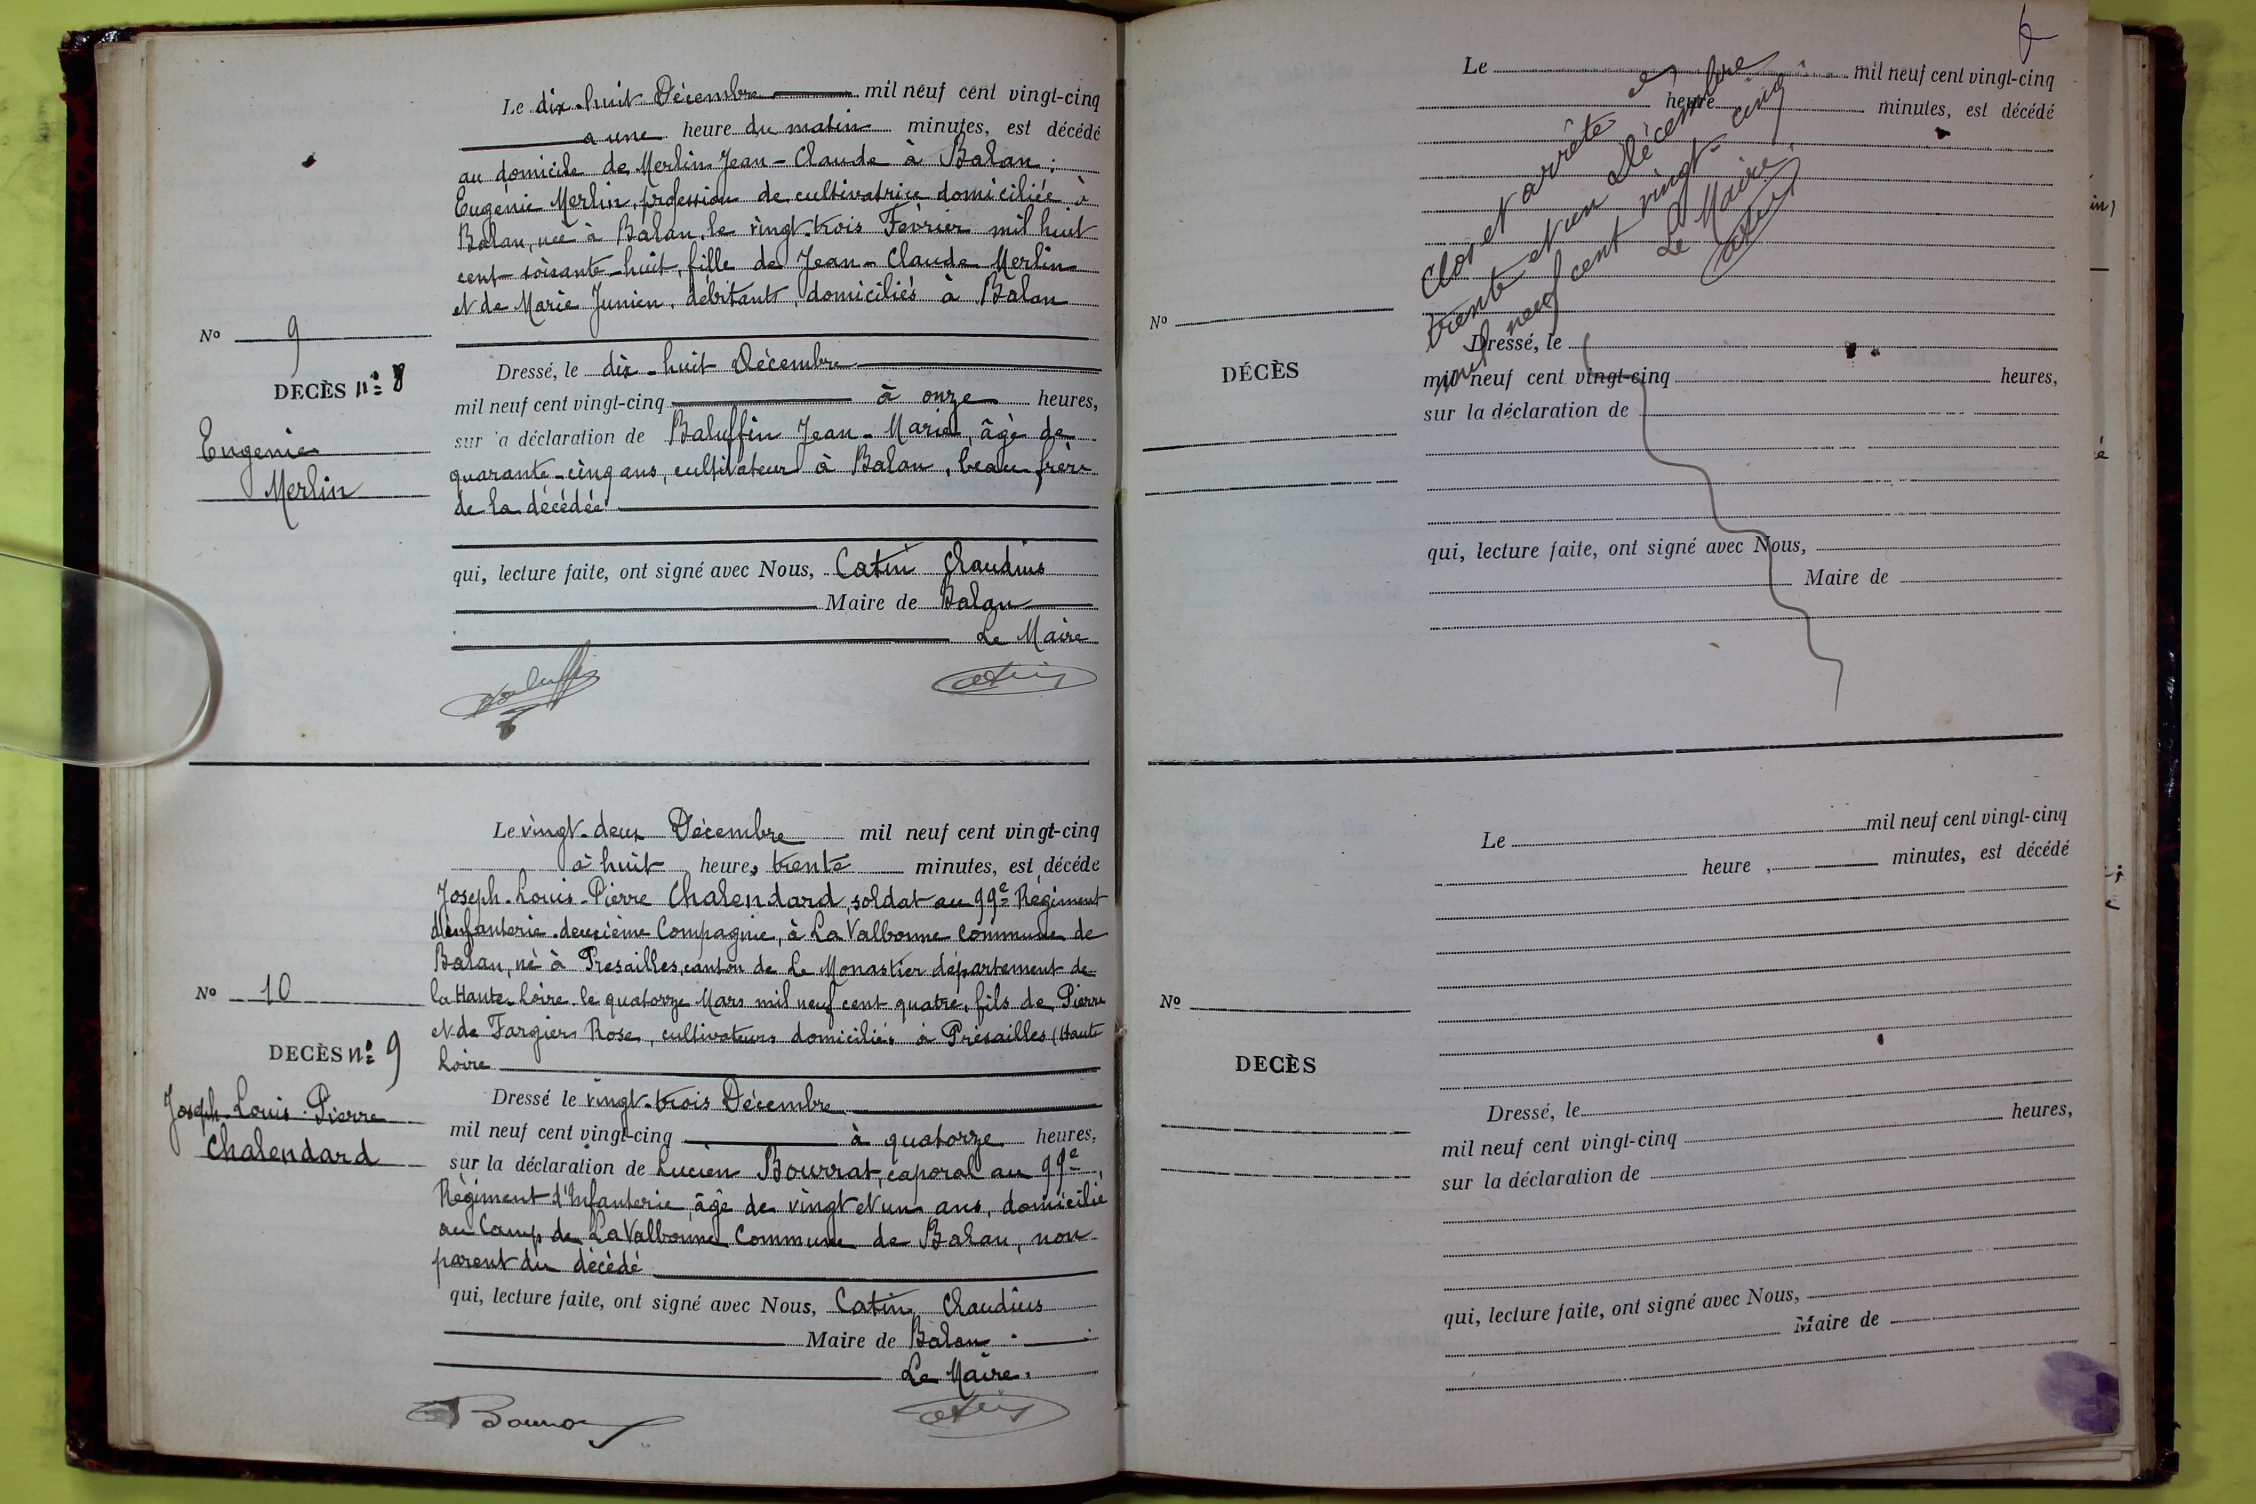 Le dix-huit Décembre mil neuf cent vingt-cinq
a une heure du matin minutes, est décédé
au domicile de Merlin Jean-Claude à Balan :
Eugénie Merlin, profession de cultivatrice domiciliée à
Balan, née à Balan, le vingt-trois Février mil huit
cent-soixante-huit, fille de Jean-Claude Merlin
et de Marie Junien, débitants, domiciliés à Balan
No 9
DECÈS n° 8
Eugenie
Merlin
Dressé, le dix-huit Décembre
mil neuf cent vingt-cinq à onze heures,
sur la déclaration de Baluffin Jean-Marie, âgé de
quarante-cinq ans, cultivateur à Balan, beau frère
de la décédée
qui, lecture faite, ont signé avec Nous, Catin Claudius
Maire de Balan
Le Maire
Baluffin
Catin
Le vingt-deux Décembre mil neuf cent vingt-cinq
à huit heures trente minutes, est décédé
Joseph-Louis-Pierre Chalendard, soldat au 99e Régiment
d'infanterie deuxième Compagnie, à La Valbonne commune de
Balan, né à Presailles, canton de Le Monastier département de
la Haute-Loire le quatorze Mars mil neuf cent quatre, fils de Pierre
et de Fargier Rose, cultivateurs domiciliés à Présailles (Haute
Loire
No 10
DECÈS n° 9
Joseph-Louis-Pierre
Chalendard
Dressé le vingt-trois Décembre
mil neuf cent vingt-cinq à quatorze heures,
sur la déclaration de Lucien Bourrat, caporal au 99e
Régiment d'Infanterie, âgé de vingt et un ans, domicilié
au Camp de La Valbonne Commune de Balan, non
parent du décédé
qui, lecture faite, ont signé avec Nous, Catin, Claudius
Maire de Balan
Le Maire.
Bourrat
Catin
6
Le mil neuf cent vingt-cinq
heure minutes, est décédé
Clos et arrêté le
trente et un Décembre
mil neuf cent vingt-cinq
Le Maire,
Catin
No
DÉCÈS
Dressé, le
mil neuf cent vingt-cinq heures,
sur la déclaration de
qui, lecture faite, ont signé avec Nous,
Maire de
Le mil neuf cent vingt-cinq
heure , minutes, est décédé
No
DECÈS
Dressé, le
mil neuf cent vingt-cinq heures,
sur la déclaration de
qui, lecture faite, ont signé avec Nous,
Maire de